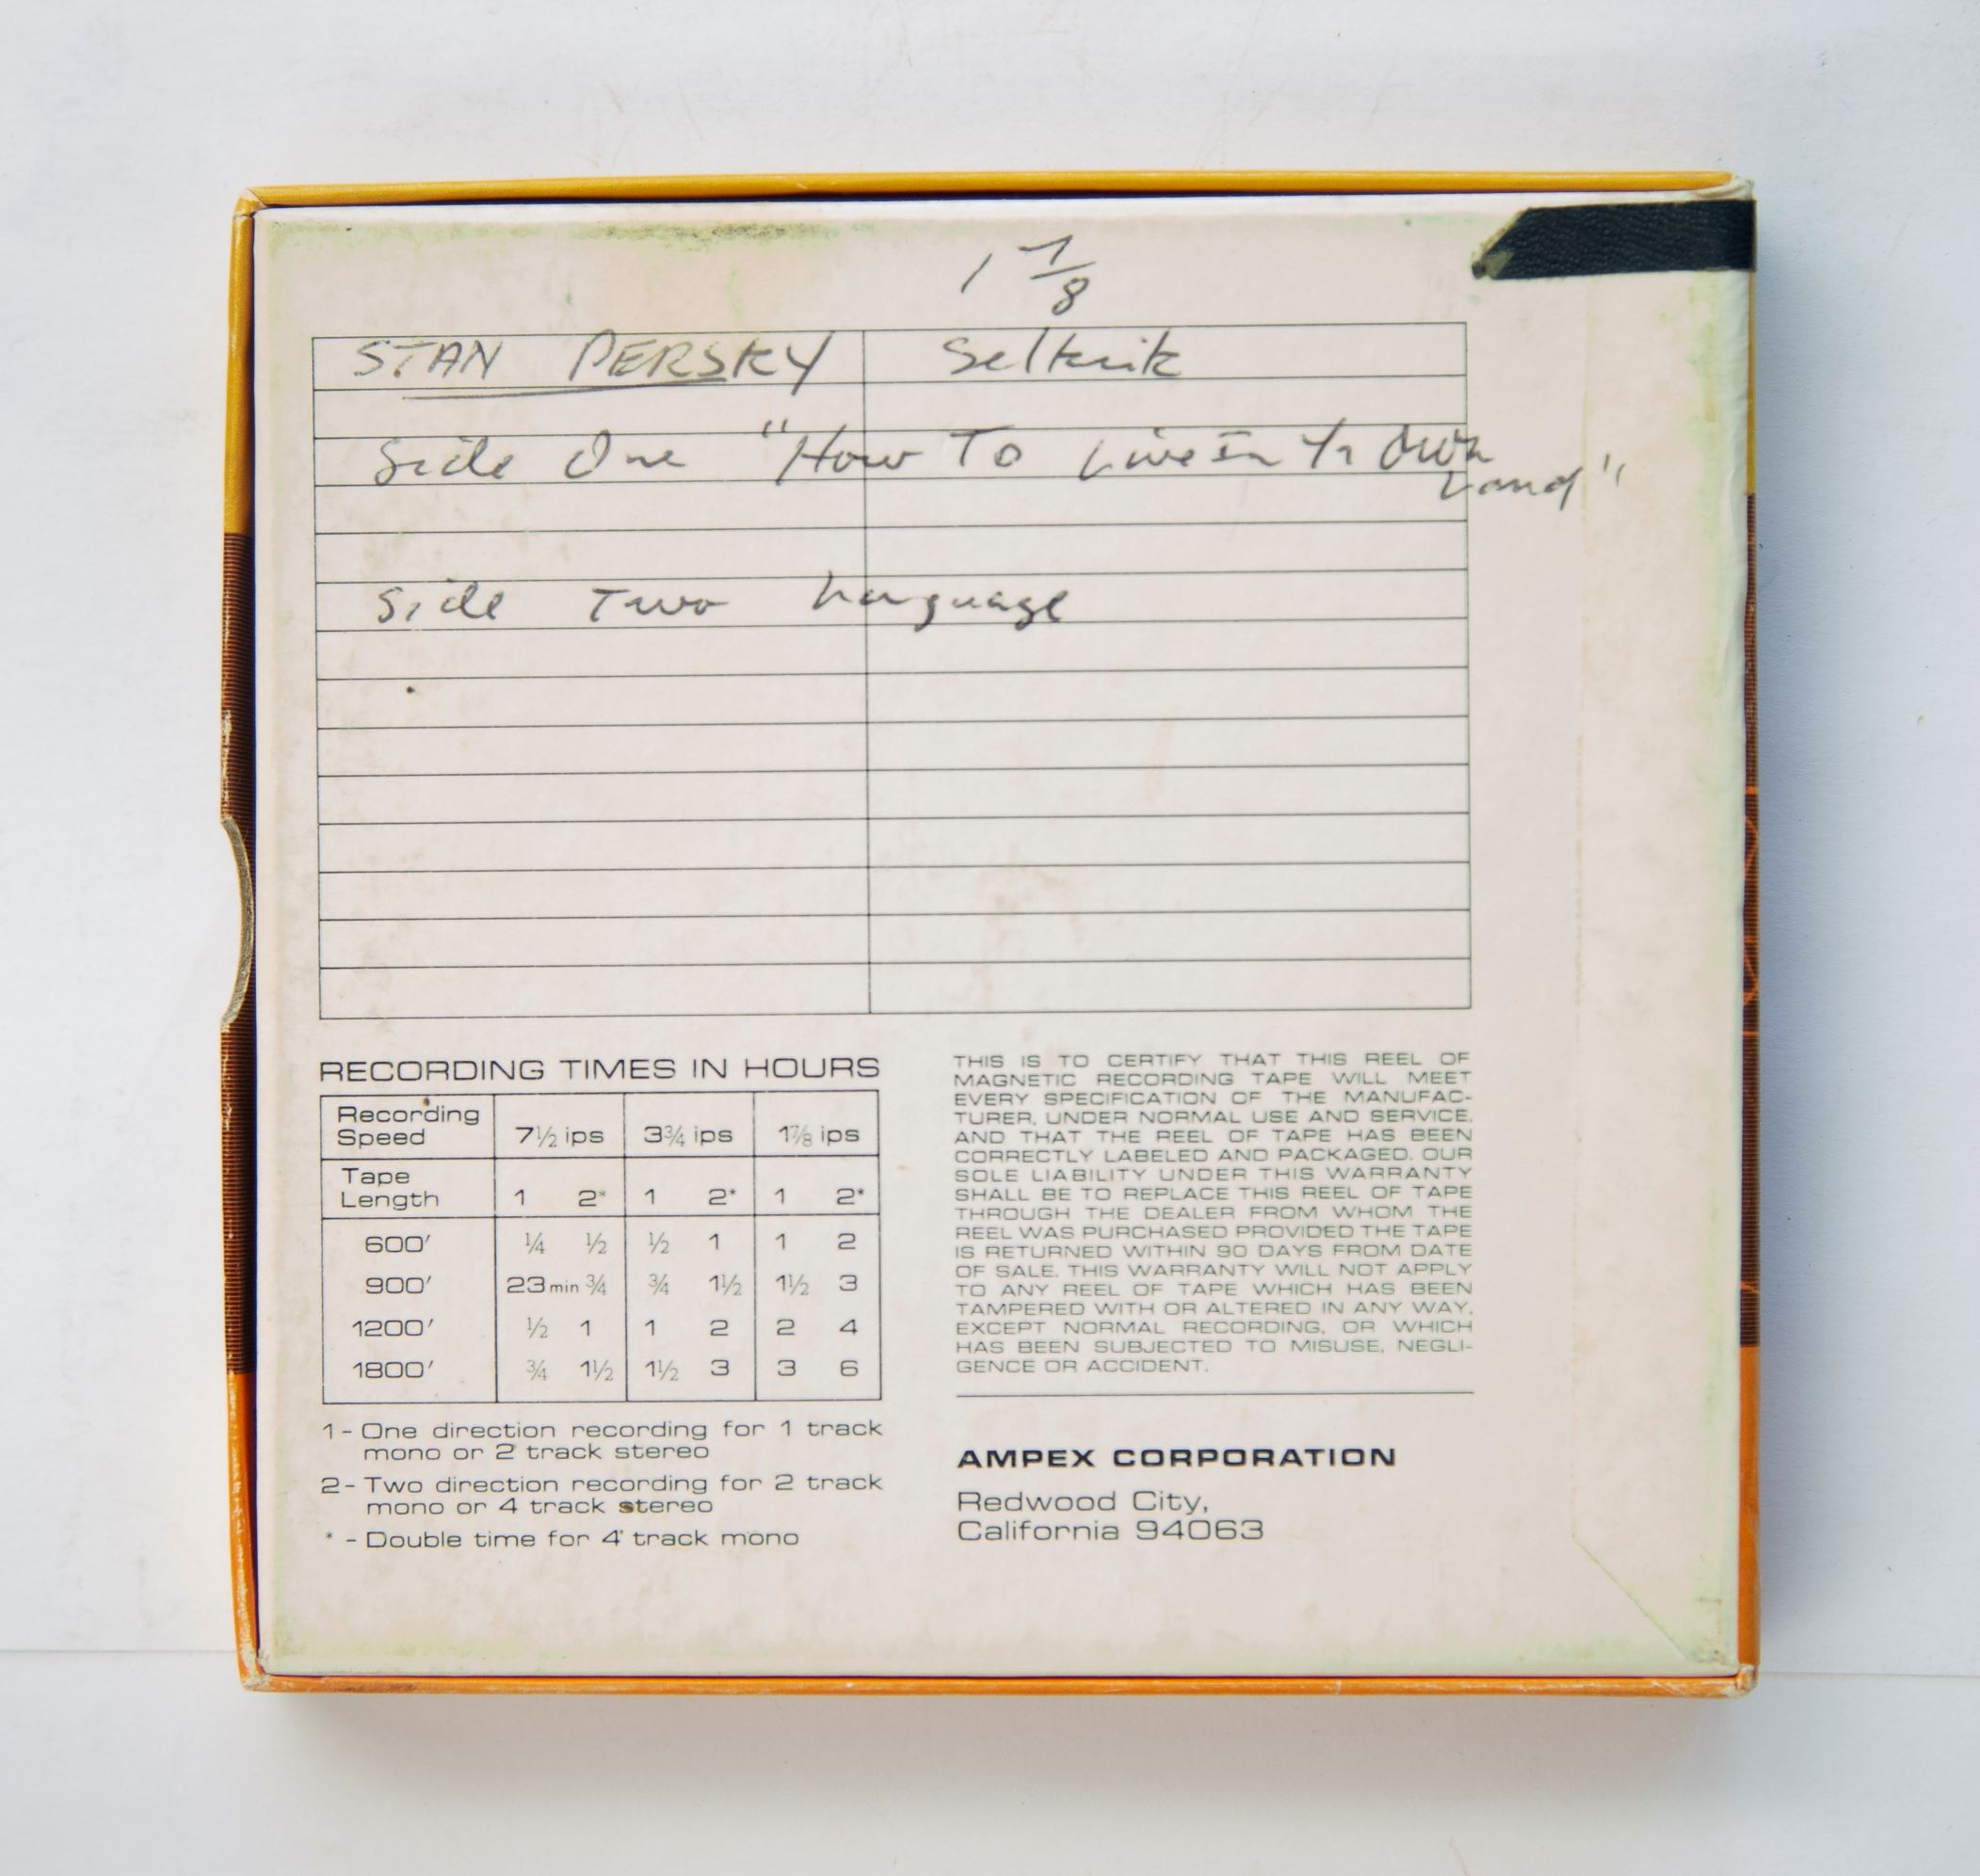 1 7/8
STAN PERSKY Selkirk
Side One "How To Live In Yr Own
Land"
Side Two Language
RECORDING TIMES IN HOURS
Recording Speed 7½ ips 3¾ ips 1⅞ ips
Tape Length 1 2* 1 2* 1 2*
600′ ¼ ½ ½ 1 1 2
900′ 23 min ¾ ¾ 1½ 1½ 3
1200′ ½ 1 1 2 2 4
1800′ ¾ 1½ 1½ 3 3 6
1 - One direction recording for 1 track
mono or 2 track stereo
2 - Two direction recording for 2 track
mono or 4 track stereo
* - Double time for 4 track mono
THIS IS TO CERTIFY THAT THIS REEL OF
MAGNETIC RECORDING TAPE WILL MEET
EVERY SPECIFICATION OF THE MANUFAC-
TURER, UNDER NORMAL USE AND SERVICE,
AND THAT THE REEL OF TAPE HAS BEEN
CORRECTLY LABELED AND PACKAGED. OUR
SOLE LIABILITY UNDER THIS WARRANTY
SHALL BE TO REPLACE THIS REEL OF TAPE
THROUGH THE DEALER FROM WHOM THE
REEL WAS PURCHASED PROVIDED THE TAPE
IS RETURNED WITHIN 90 DAYS FROM DATE
OF SALE. THIS WARRANTY WILL NOT APPLY
TO ANY REEL OF TAPE WHICH HAS BEEN
TAMPERED WITH OR ALTERED IN ANY WAY,
EXCEPT NORMAL RECORDING, OR WHICH
HAS BEEN SUBJECTED TO MISUSE, NEGLI-
GENCE OR ACCIDENT.
AMPEX CORPORATION
Redwood City,
California 94063